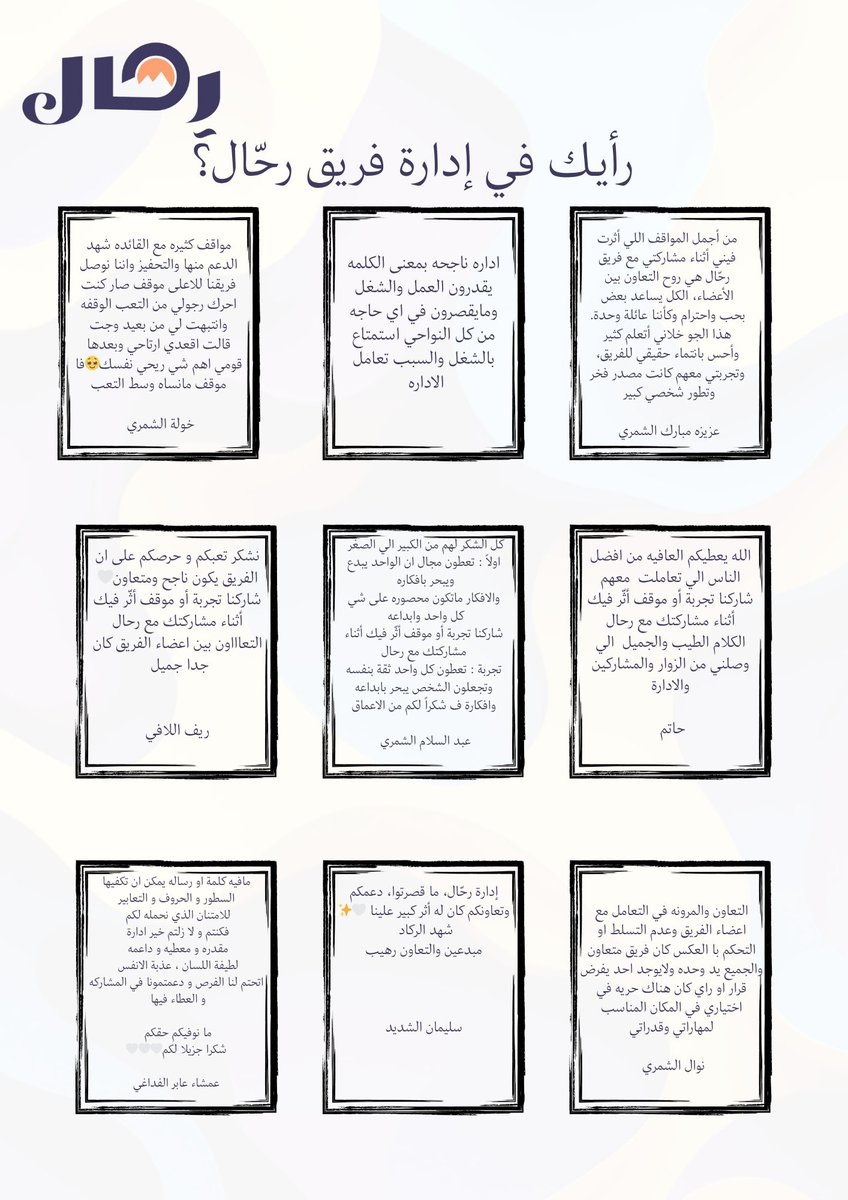 رحال
رأيك في إدارة فريق رحّال؟
من أجمل المواقف اللي أثرت
فيني أثناء مشاركتي مع فريق
رحّال هي روح التعاون بين
الأعضاء، الكل يساعد بعض
بحب واحترام وكأننا عائلة وحدة.
هذا الجو خلاني أتعلم كثير
وأحس بانتماء حقيقي للفريق،
وتجربتي معهم كانت مصدر فخر
وتطور شخصي كبير
عزيزه مبارك الشمري
اداره ناجحه بمعنى الكلمه
يقدرون العمل والشغل
ومايقصرون في اي حاجه
من كل النواحي استمتاع
بالشغل والسبب تعامل
الاداره
مواقف كثيره مع القائده شهد
الدعم منها والتحفيز واننا نوصل
فريقنا للاعلى موقف صار كنت
احرك رجولي من التعب الوقفه
وانتبهت لي من بعيد وجت
قالت اقعدي ارتاحي وبعدها
قومي اهم شي ريحي نفسك🥹فا
موقف مانساه وسط التعب
خولة الشمري
الله يعطيكم العافيه من افضل
الناس الي تعاملت معهم
شاركنا تجربة أو موقف أثّر فيك
أثناء مشاركتك مع رحال
الكلام الطيب والجميل الي
وصلني من الزوار والمشاركين
والادارة
حاتم
كل الشكر لهم من الكبير الي الصغير
اولاً : تعطون مجال ان الواحد يبدع
ويبحر بافكاره
والافكار ماتكون محصوره على شي
كل واحد وابداعه
شاركنا تجربة أو موقف أثّر فيك أثناء
مشاركتك مع رحال
تجربة : تعطون كل واحد ثقة بنفسه
وتجعلون الشخص يبحر بابداعه
وافكارة ف شكراً لكم من الاعماق
عبد السلام الشمري
نشكر تعبكم و حرصكم على ان
الفريق يكون ناجح ومتعاون🤍
شاركنا تجربة أو موقف أثّر فيك
أثناء مشاركتك مع رحال
التعاااون بين اعضاء الفريق كان
جدا جميل
ريف اللافي
التعاون والمرونه في التعامل مع
اعضاء الفريق وعدم التسلط او
التحكم با العكس كان فريق متعاون
والجميع يد وحده ولايوجد احد يفرض
قرار او راي كان هناك حريه في
اختياري في المكان المناسب
لمهاراتي وقدراتي
نوال الشمري
إدارة رحّال، ما قصرتوا، دعمكم
وتعاونكم كان له أثر كبير علينا 🤍✨
شهد الركاد
مبدعين والتعاون رهيب
سليمان الشديد
مافيه كلمة او رساله يمكن ان تكفيها
السطور و الحروف و التعابير
للامتنان الذي نحمله لكم
فكنتم و لا زلتم خير ادارة
مقدره و معطيه و داعمه
لطيفة اللسان ، عذبة الانفس
اتحتم لنا الفرص و دعمتمونا في المشاركه
و العطاء فيها
ما نوفيكم حقكم
شكرا جزيلا لكم🤍🤍🤍
عمشاء عابر الفداغي